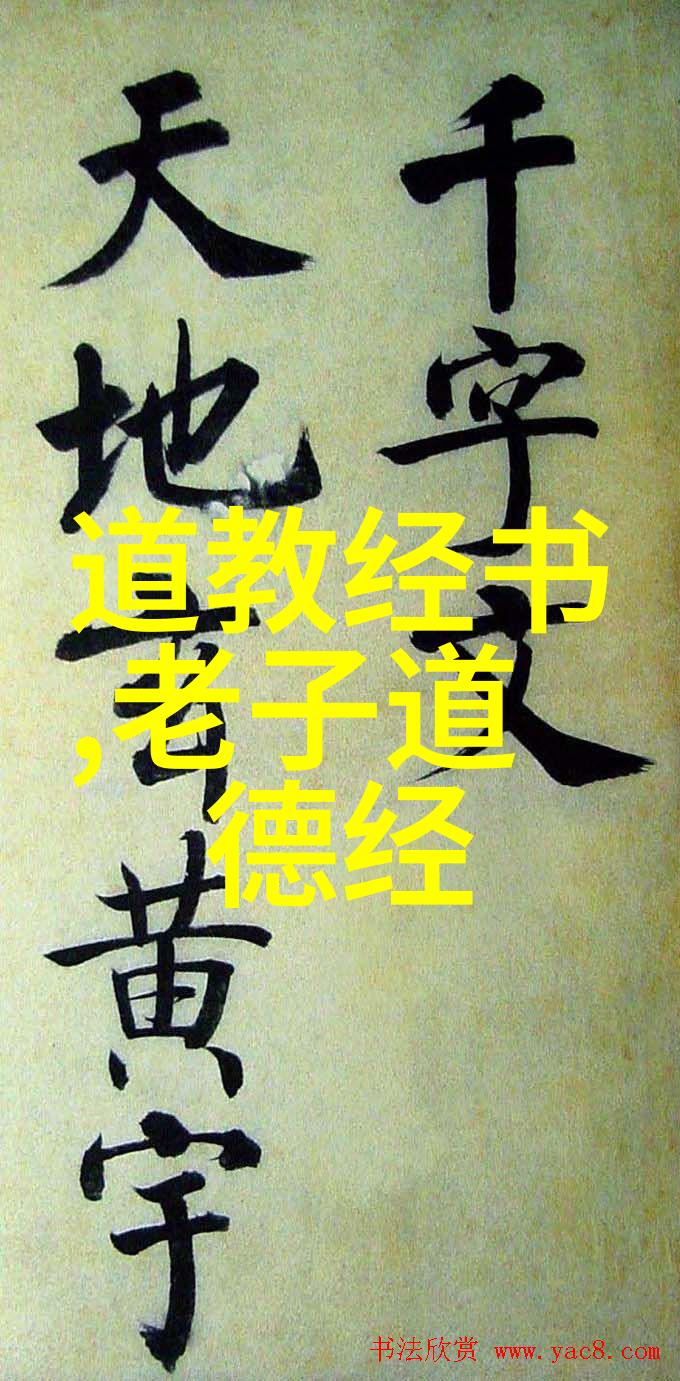 千字文
天地黄宇
道教经书
,老子道
德经
书法欣赏 www.yac8.com